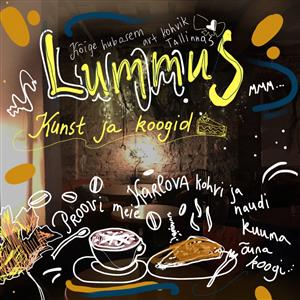 Kõige hubasem art kohvik
Tallinnas
Lummus
MMM...
Kunst ja koogid
Proovi meie Karlova kohvi ja
naudi
kuuma
õuna
koogi...